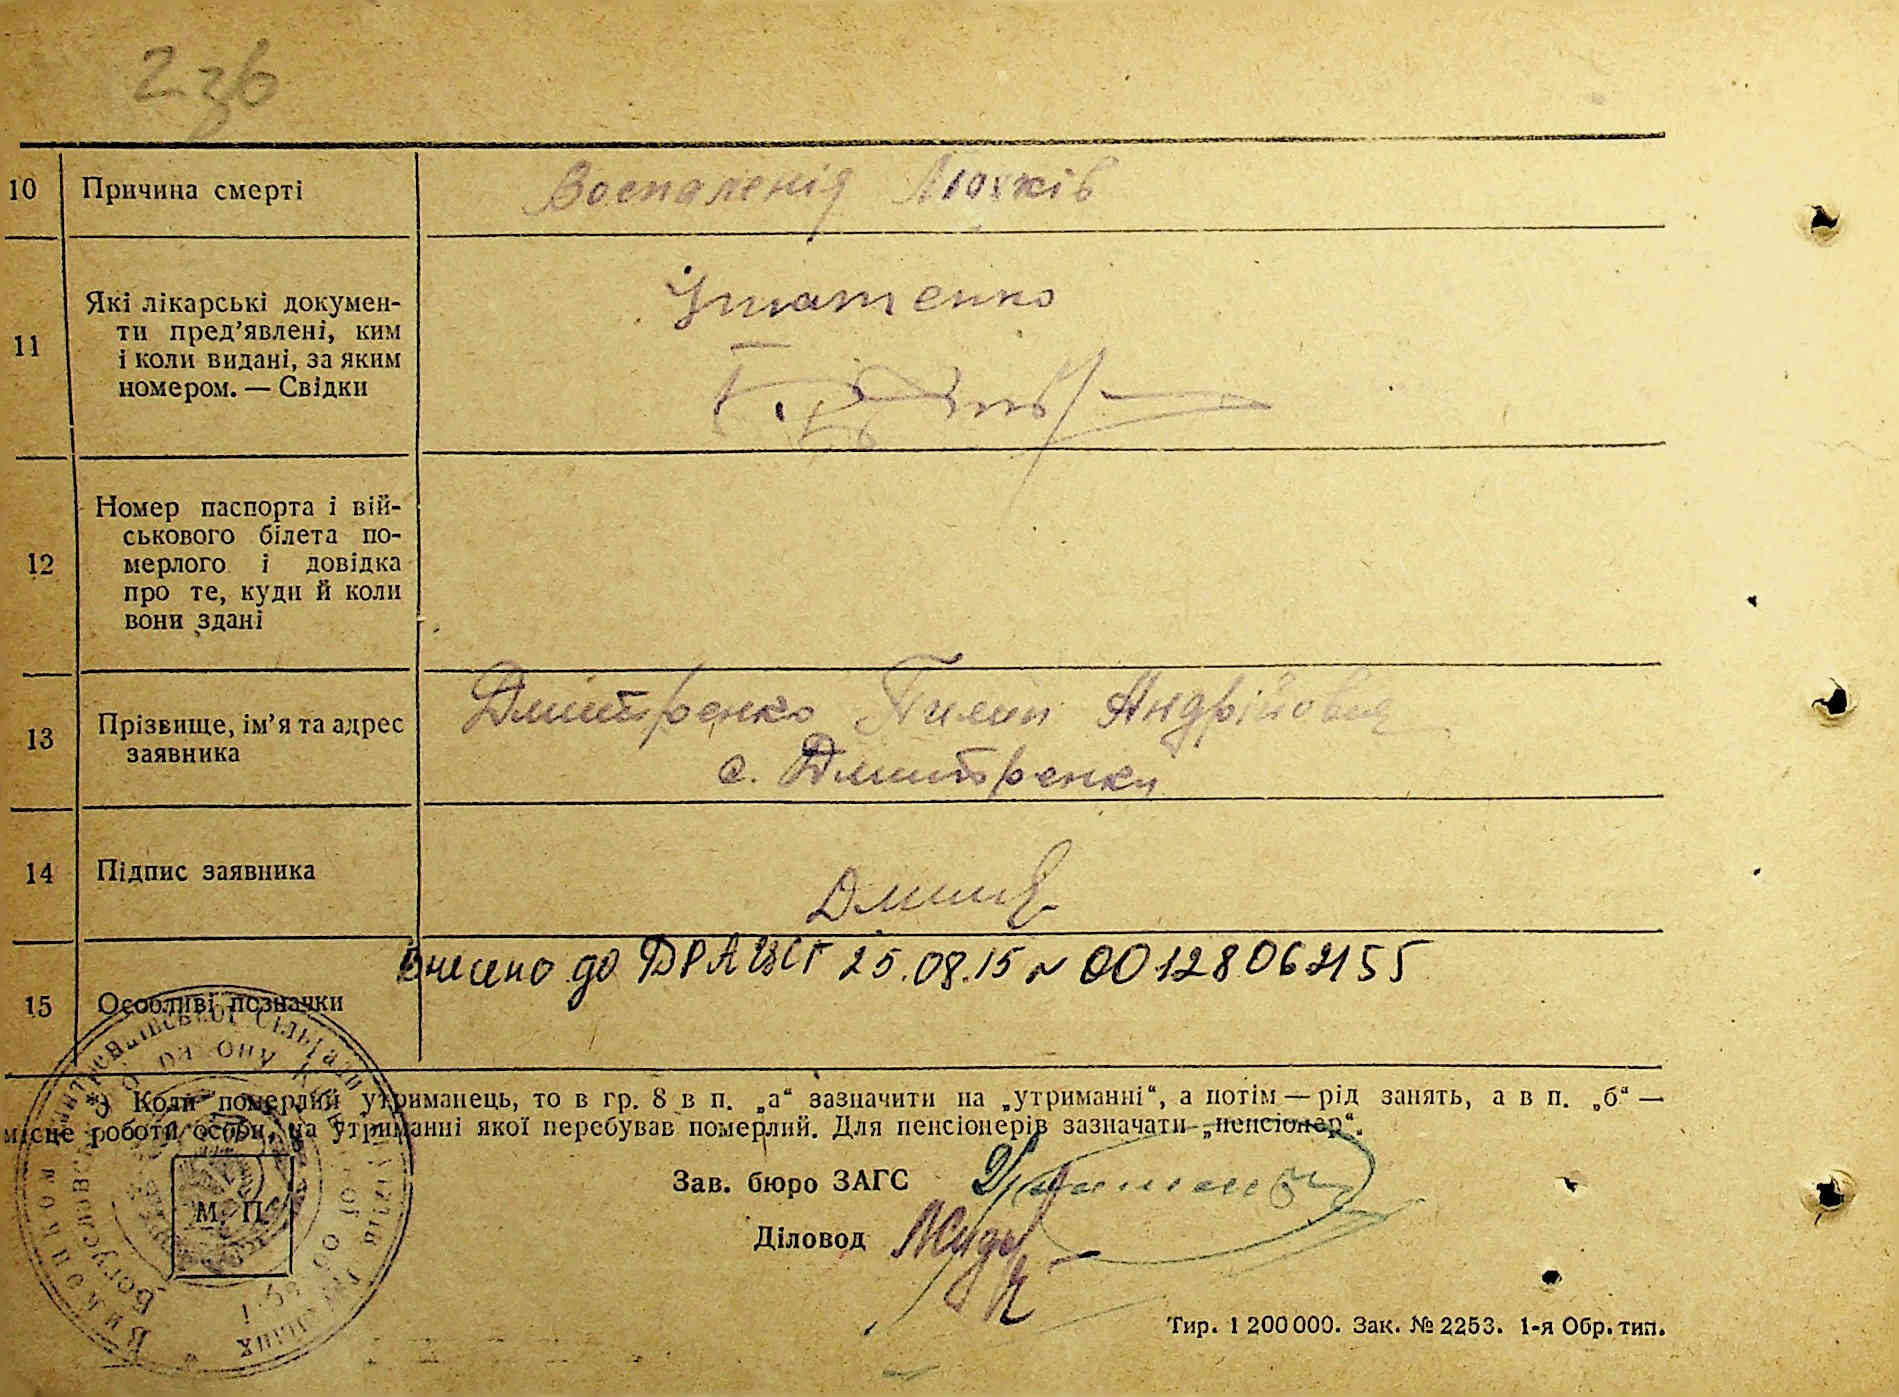 10 Причина смерті Воспаленія Льохків
11 Які лікарські докумен-
ти пред’явлені, ким
і коли видані, за яким
номером. — Свідки
12 Номер паспорта і вій-
ськового білета по-
мерлого і довідка
про те, куди й коли
вони здані
13 Прізвище, ім’я та адрес
заявника
Дмитренко Пилип Андрійович
с. Дмитренки
14 Підпис заявника
Внесено до ДРАЦСГ 25.08.15 № 00128062155
15 Особливі позначки
*) Коли померлий утриманець, то в гр. 8 в п. „а“ зазначити на „утриманні“, а потім — рід занять, а в п. „б“ —
місце роботи особи, на утриманні якої перебував померлий. Для пенсіонерів зазначати „пенсіонер“.
Зав. бюро ЗАГС
М. П.
Діловод
Тир. 1 200 000. Зак. № 2253. 1-я Обр. тип.